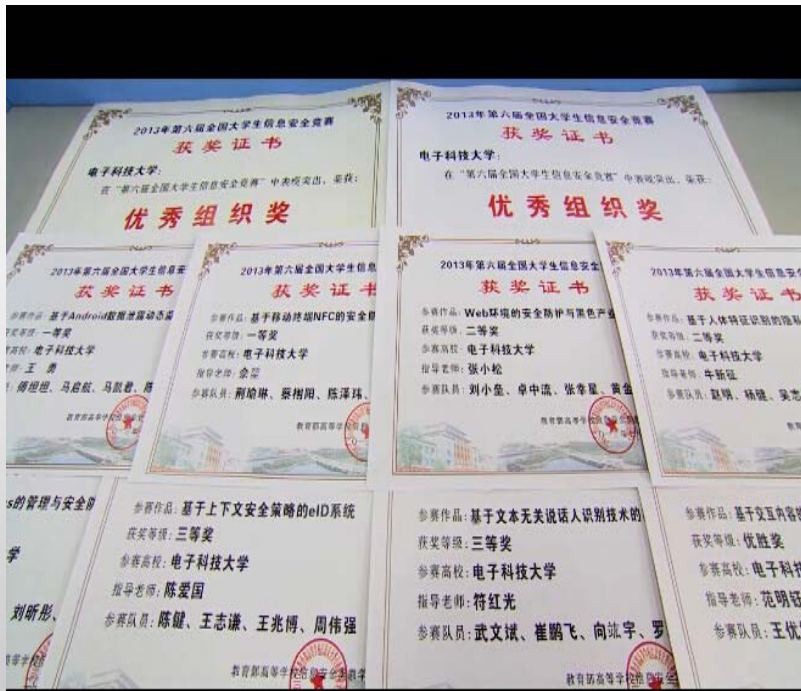 2013年第六届全国大学生信息安全竞赛
获奖证书
电子科技大学：
在“第六届全国大学生信息安全竞赛”中表现突出，荣获：
优秀组织奖
2013年第六届全国大学生信息安全竞赛
获奖证书
电子科技大学：
在“第六届全国大学生信息安全竞赛”中表现突出，荣获：
优秀组织奖
2013年第六届全国大学生信息安
获奖证书
参赛作品：基于Android数据泄露动态监
获奖等级：一等奖
高校：电子科技大学
王勇
马启航、马凯君、陈
教育部高等学校
2013年第六届全国大学生信息
获奖证书
参赛作品：基于移动终端NFC的安全防
获奖等级：一等奖
参赛高校：电子科技大学
指导老师：
参赛队员：邢瑜琳、蔡栩阳、陈泽玮、
教育部高等学校信息
2013年第六届全国大学生信息安全
获奖证书
参赛作品：Web环境的安全防护与黑色产业
获奖等级：二等奖
参赛高校：电子科技大学
指导老师：张小松
参赛队员：刘小垒、卓中流、张幸星、黄金
教育部高等学校信息安全
2013年第六届全国大学生信息安
获奖证书
参赛作品：基于人体特征识别的隐私
获奖等级：二等奖
参赛高校：电子科技大学
指导老师：牛新征
参赛队员：赵明、杨健、吴志
教育部高等学
s的管理与安全防
学
刘昕彤、
参赛作品：基于上下文安全策略的eID系统
获奖等级：三等奖
参赛高校：电子科技大学
指导老师：陈爱国
参赛队员：陈健、王志谦、王兆博、周伟强
教育部高等学校信息安全类教学
参赛作品：基于文本无关说话人识别技术的
获奖等级：三等奖
参赛高校：电子科技大学
指导老师：符红光
参赛队员：武文斌、崔鹏飞、向竑宇、罗
教育部高等学校信息安全
参赛作品：基于交互内容
获奖等级：优胜奖
参赛高校：电子科技
指导老师：范明钰
参赛队员：王优